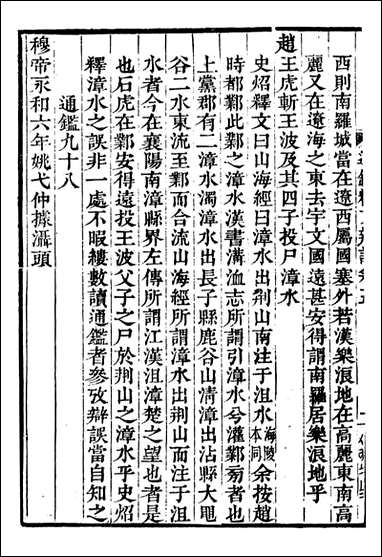 西則南羅城當在遼西屬國塞外若漢樂浪地在高麗東南高
麗又在遼海之東去宇文國遠甚安得謂南羅居樂浪地乎
趙王虎斬王波及其四子投尸漳水
史炤釋文曰山海經曰漳水出荆山南注于沮水海陵本同余按趙
時都鄴此鄴之漳水漢書溝洫志所謂引漳水兮灌鄴旁者也
上黨郡有二漳水濁漳水出長子縣鹿谷山清漳出沾縣大黽
谷二水東流至鄴而合流山海經所謂漳水出荆山而注于沮
水者今在襄陽南漳縣界左傳所謂江漢沮漳楚之望也者是
也石虎在鄴安得遠投王波父子之尸於荆山之漳水乎史炤
釋漳水之誤非一處不暇縷數讀通鑑者參攷辯誤當自知之
通鑑九十八
穆帝永和六年姚弋仲據灄頭